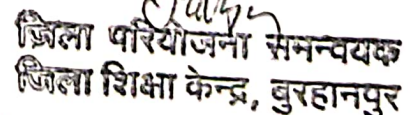 ज़िला परियोजना समन्वयक
जिला शिक्षा केन्द्र, बुरहानपुर